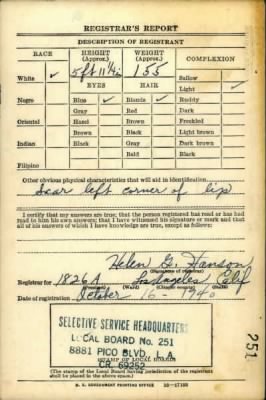 REGISTRAR'S REPORT
DESCRIPTION OF REGISTRANT
RACE HEIGHT (Approx.) WEIGHT (Approx.) COMPLEXION
White ✓ 5 ft 11 1/2 in 155 Sallow
EYES HAIR Light ✓
Negro Blue ✓ Blonde ✓ Ruddy
Gray Red Dark
Oriental Hazel Brown Freckled
Brown Black Light brown
Indian Black Gray Dark brown
Bald Black
Filipino
Other obvious physical characteristics that will aid in identification
Scar left corner of lip
I certify that my answers are true; that the person registered has read or has had
read to him his own answers; that I have witnessed his signature or mark and that
all of his answers of which I have knowledge are true, except as follows:
Helen G. Hanson
(Signature of registrar)
Registrar for 1826A Los Angeles Calif
Date of registration October 16 - 1940
SELECTIVE SERVICE HEADQUARTERS
LOCAL BOARD No. 251
8881 PICO BLVD. L.A.
CR. 69252
(STAMP OF LOCAL BOARD)
(The stamp of the Local Board having jurisdiction of the registrant
shall be placed in the above space.)
U. S. GOVERNMENT PRINTING OFFICE 16-17105
251